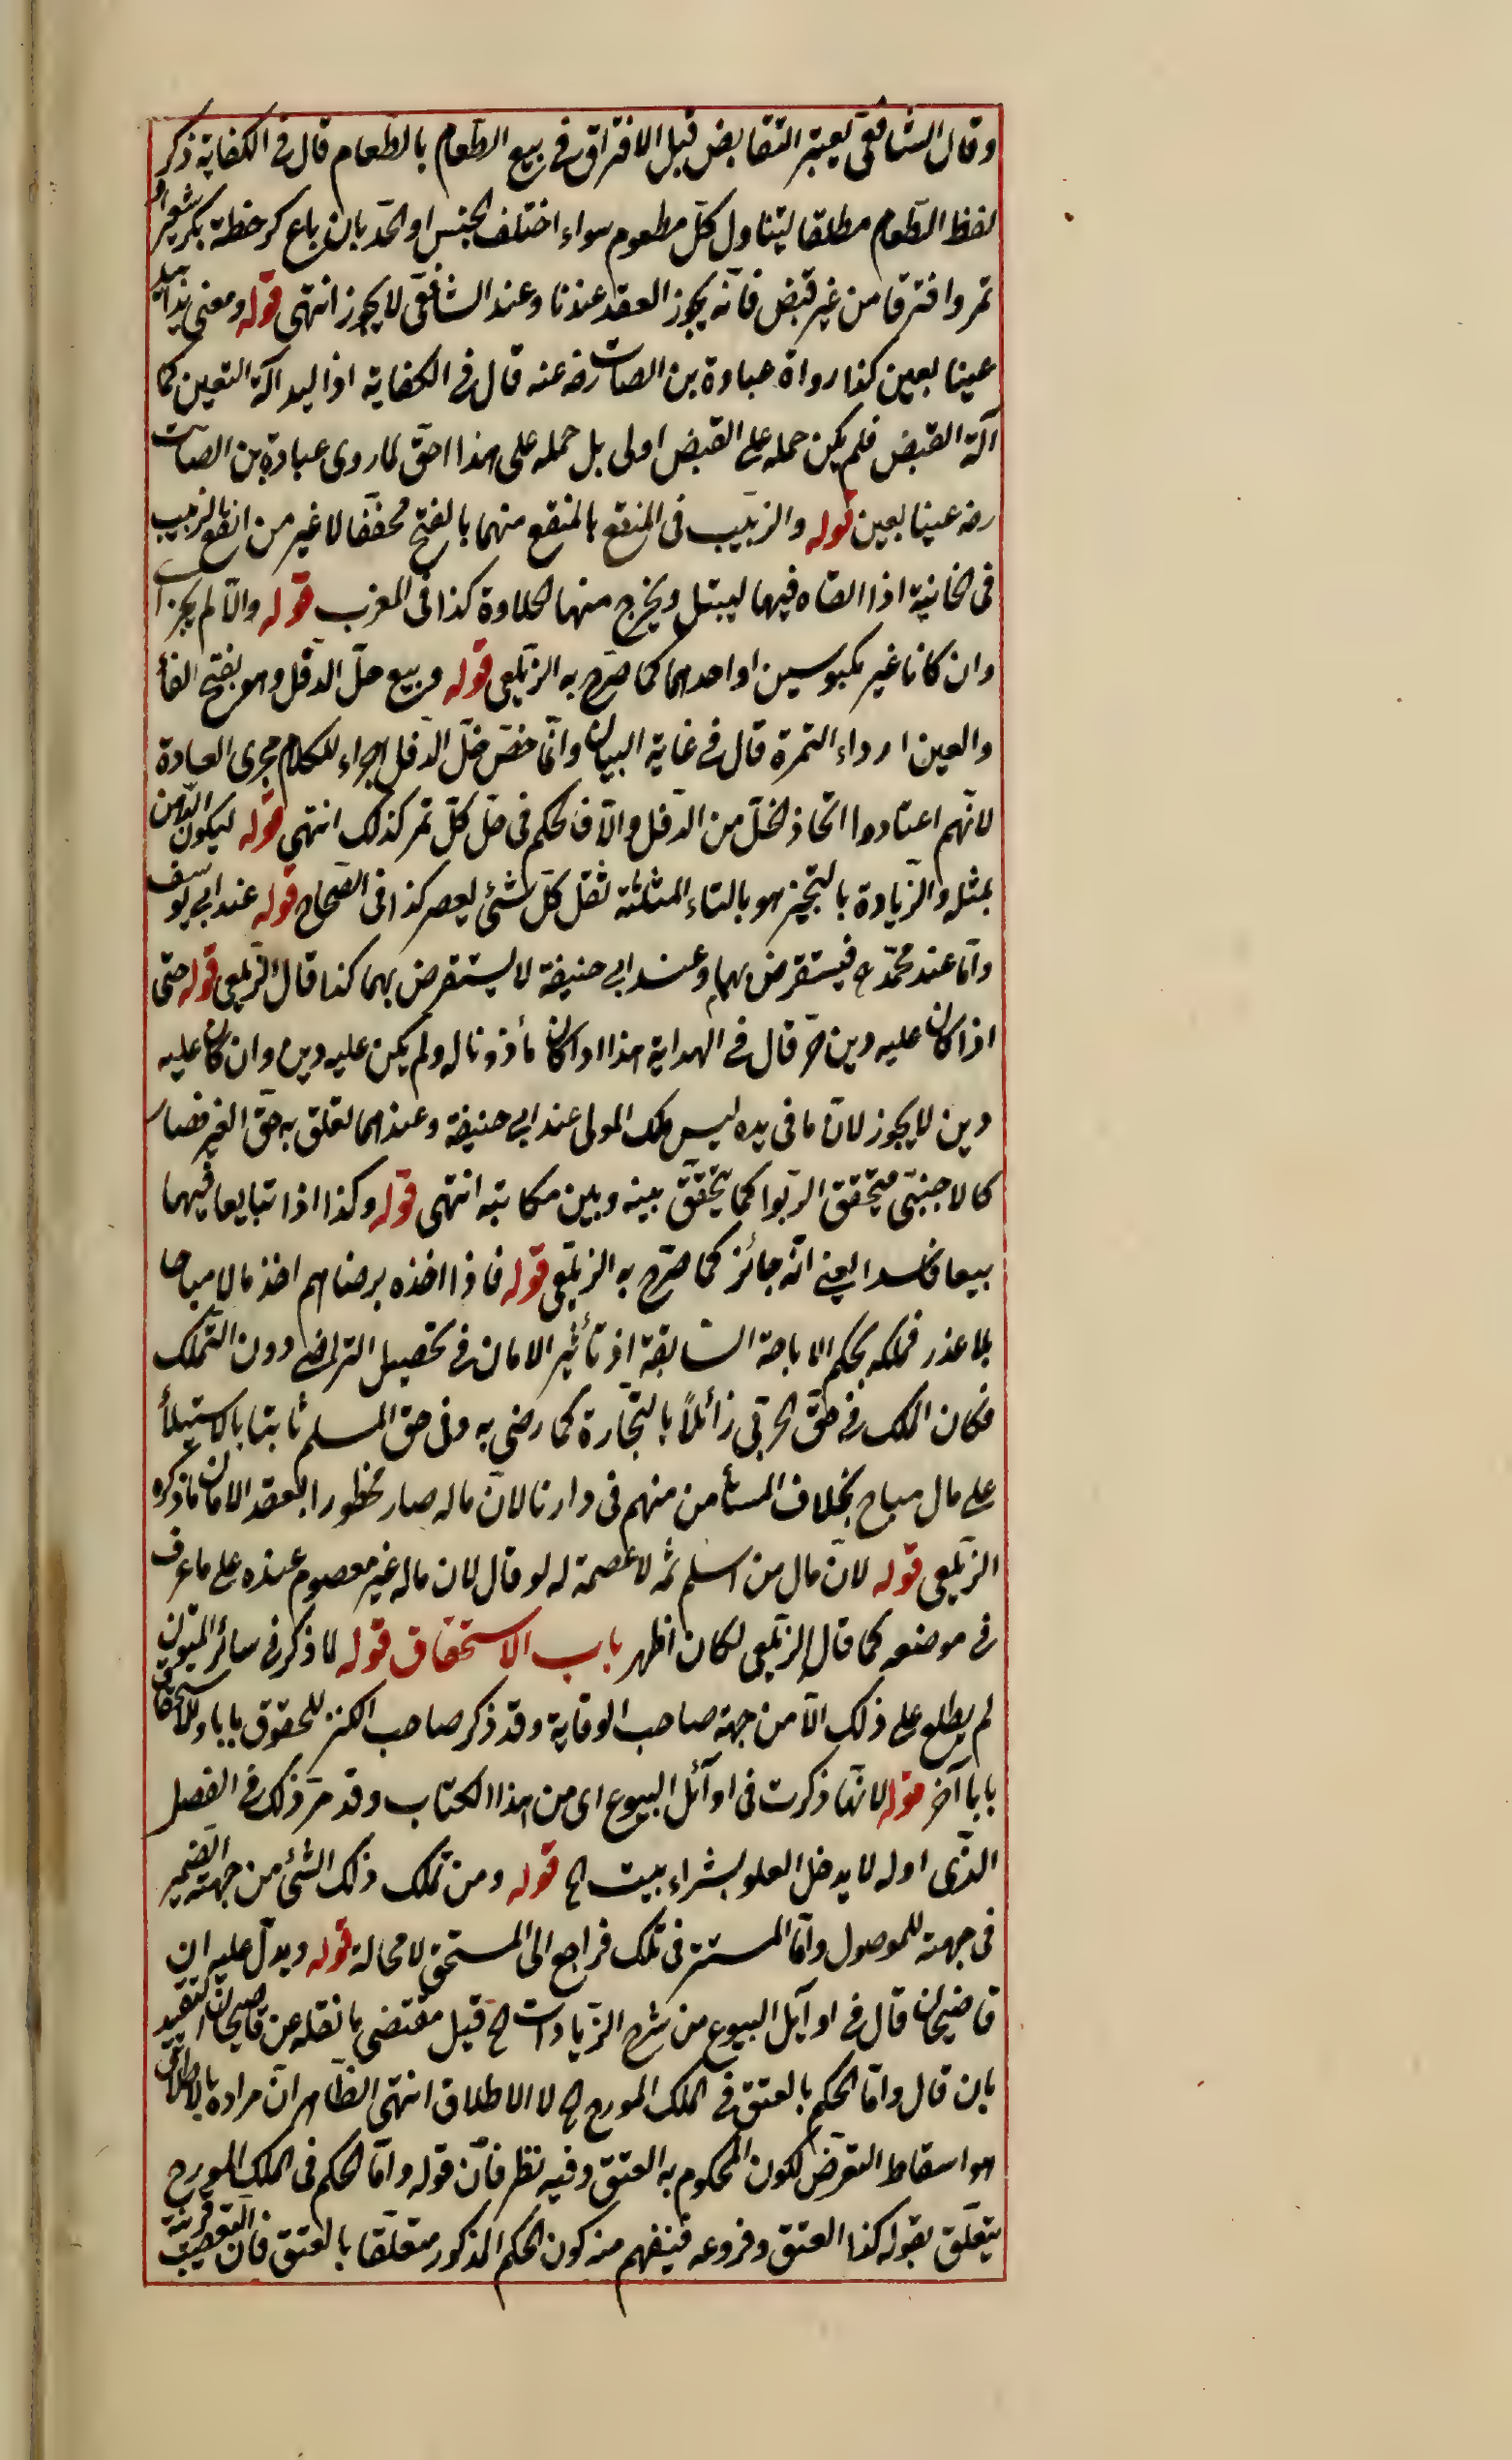 وقال الشافعى يعتبر التقابض قبل الافتراق فى بيع الطعام بالطعام قال فى الكفاية ذكر
لفظ الطعام مطلقا ليتناول كل مطعوم سواء اختلف الجنس او اتحد بان باع كر حنطة بكر شعير او
تمر وافترقا من غير قبض فانه يجوز العقد عندنا وعند الشافعى لا يجوز انتهى قوله ومعنى يدا بيد
عينا بعين كذا رواه عبادة بن الصامت رضه عنه قال فى الكفاية اذ اليد آلة التعين كما
آلة القبض فلم يكن حمله على القبض اولى بل حمله على هذا احق لما روى عبادة بن الصامت
رضه عينا بعين قوله والزبيب فى المنقع بالمنقع منهما بالفتح مخففا لا غير من انقع الزبيب
فى الخابية اذا القاه فيها ليبتل ويخرج منها الحلاوة كذا فى المغرب قوله والا لم يجز اى
وان كانا غير مكبوسين او احدهما كما صرح به الزيلعى قوله وبيع خل الدقل وهو بفتح الفاء
والعين ارداء التمرة قال فى غاية البيان وانما خص خل الدقل اجراء للكلام مجرى العادة
لانهم اعتادوا اتخاذ الخل من الدقل والا فالحكم فى خل كل تمر كذلك انتهى قوله ليكون الدهن
بمثله والزيادة بالثجير هو بالثاء المثلثة ثفل كل شئ يعصر كذا فى الصحاح قوله عند ابى يوسف
واما عند محمد ع فيستقرض بهما وعند ابى حنيفة لا يستقرض بهما كذا قال الزيلعى قوله حتى
اذا كان عليه دين الخ قال فى الهداية هذا اذا كان مأذونا له ولم يكن عليه دين وان كان عليه
دين لا يجوز لان ما فى يده ليس ملك المولى عند ابى حنيفة وعندهما تعلق به حق الغير فصار
كالاجنبى فيتحقق الربوا كما يتحقق بينه وبين مكاتبه انتهى قوله وكذا اذا تبايعا فيهما
بيعا فاسدا يعنى انه جائز كما صرح به الزيلعى قوله فاذا اخذه برضاهم اخذ مالا مباحا
بلا عذر فملكه بحكم الاباحة السابقة اذ تأثير الامان فى تحصيل التراضى دون التملك
فكان الملك فى حق الحربى زائلا بالتجارة كما رضى به وفى حق المسلم ثابتا بالاستيلاء
على مال مباح بخلاف المستأمن منهم فى دارنا لان ماله صار محظورا بعقد الامان ما ذكره
الزيلعى قوله لان مال من اسلم ثمه لا عصمة له لو قال لان ماله غير معصوم عنده على ما عرف
فى موضعه كما قال الزيلعى لكان اظهر باب الاستحقاق قوله لما ذكر فى سائر المتون
لم يطلع على ذلك الا من جهة صاحب الوقاية وقد ذكر صاحب الكنز للحقوق بابا وللاستحقاق
بابا آخر قوله لانها ذكرت فى اوآئل البيوع اى من هذا الكتاب وقد مر ذلك فى الفصل
الذى اوله لا يدخل العلو بشراء بيت الخ قوله ومن تملك ذلك الشئ من جهته الضمير
فى جهته للموصول واما المستتر فى تملك فراجع الى المستحق لا محالة قوله ويدل عليه ان
قاضيخان قال فى اوآيل البيوع من شرح الزيادات الخ قيل مقتضى ما نقله عن قاضيخان التقييد
بان قال واما الحكم بالعتق فى الملك المورخ الخ لا الاطلاق انتهى الظاهر ان مراده بالاطلاق
هو اسقاط التعرض لكون المحكوم به العتق وفيه نظر فان قوله واما الحكم فى الملك المورخ
يتعلق بقوله كذا العتق وفروعه فينفهم منه كون الحكم المذكور متعلقا بالعتق فان التعقيب قرينة